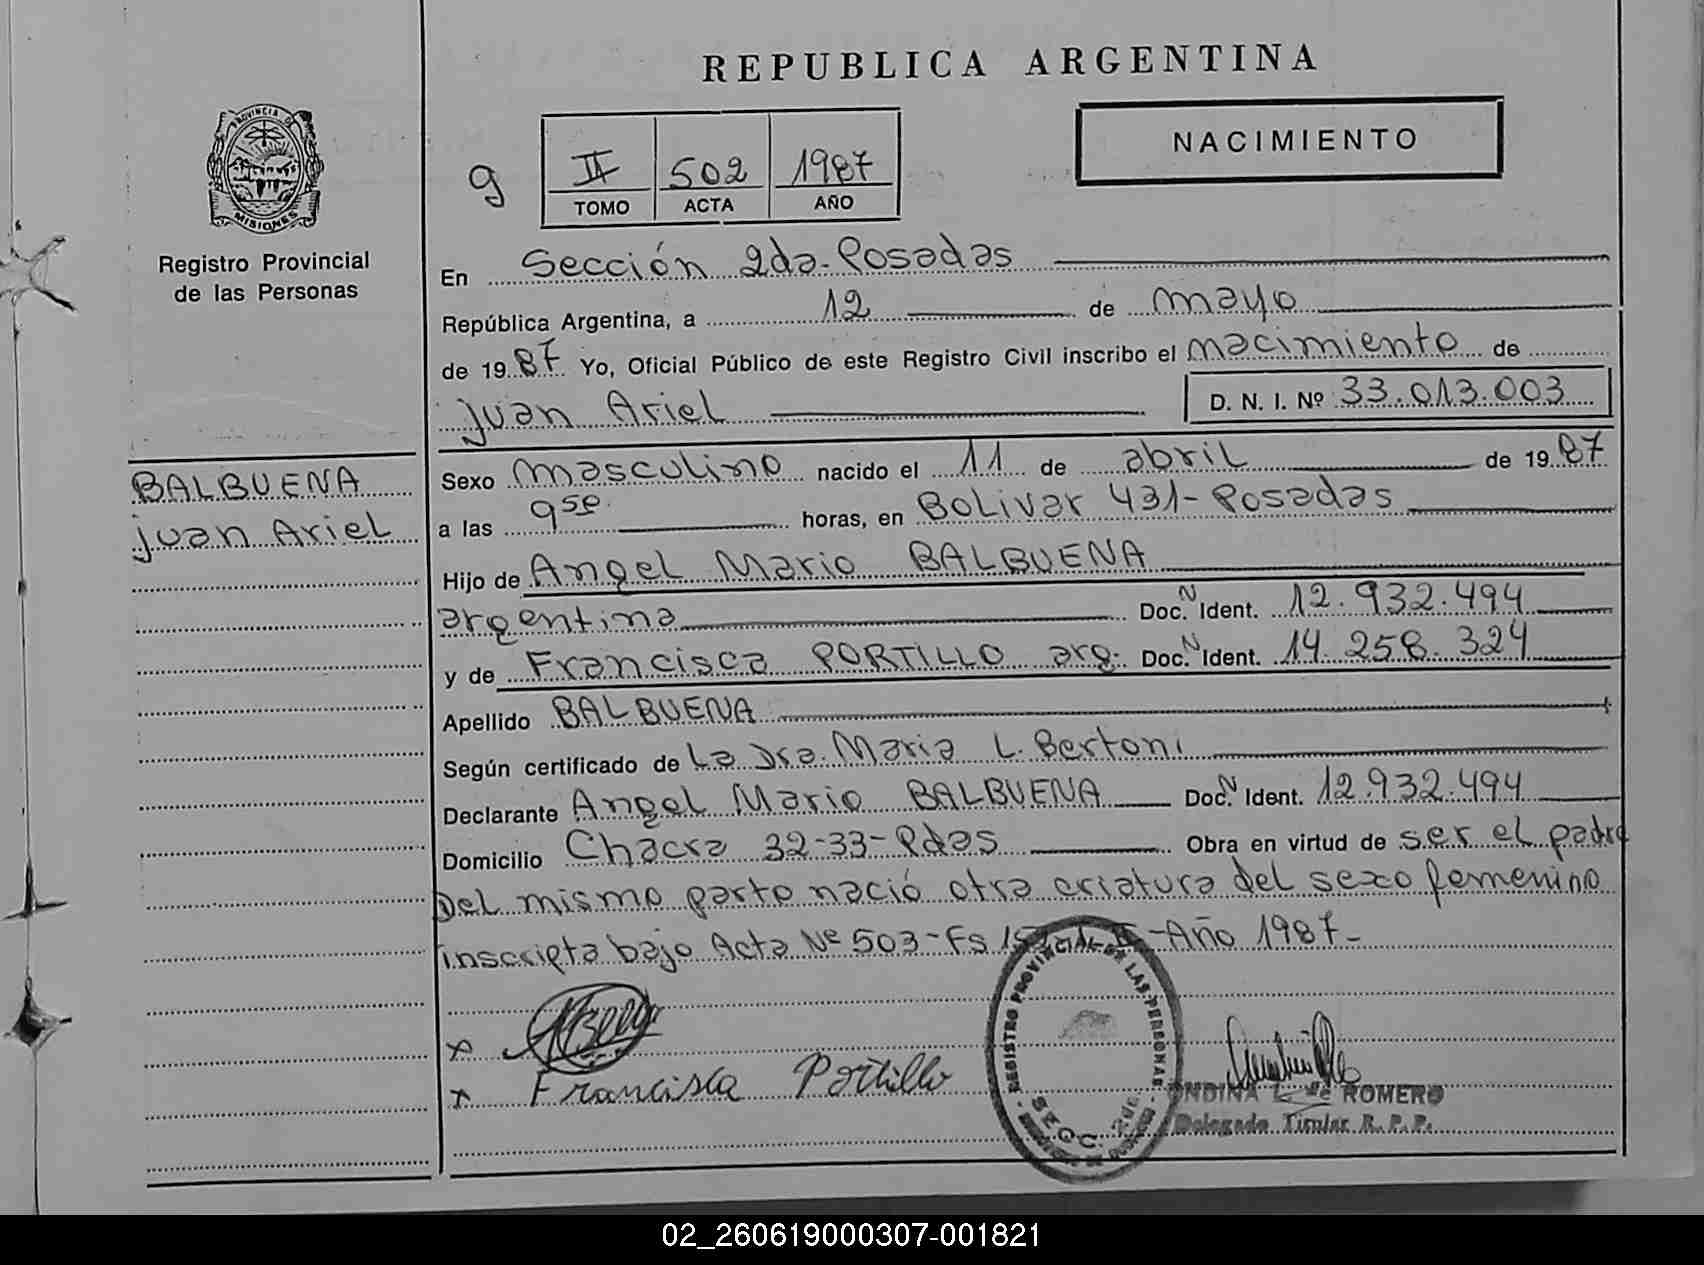 REPUBLICA ARGENTINA
PROVINCIA DE
MISIONES
Registro Provincial
de las Personas
g
II 502 1987
TOMO ACTA AÑO
NACIMIENTO
En Sección 2da-Posadas
República Argentina, a 12 de mayo
de 1987 Yo, Oficial Público de este Registro Civil inscribo el nacimiento de
Juan Ariel D. N. I. Nº 33.013.003
BALBUENA
Juan Ariel
Sexo masculino nacido el 11 de abril de 1987
a las 9 horas, en Bolivar 431-Posadas
Hijo de Angel Mario BALBUENA
argentina Doc. N Ident. 12.932.494
y de Francisca PORTILLO arg. Doc. N Ident. 14.258.324
Apellido BALBUENA
Según certificado de La Dra. Maria L. Bertoni
Declarante Angel Mario BALBUENA Doc. N Ident. 12.932.494
Domicilio Chacra 32-33-Pdas Obra en virtud de ser el padre
Del mismo parto nació otra criatura del sexo femenino
inscripta bajo Acta Nº 503-Fs -Año 1987-
x
x Francisca Portillo
REGISTRO PROVINCIAL DE LAS PERSONAS
SECC. 2da
ONDINA L. de ROMERO
Delegada Titular R. P. P.
02_260619000307-001821